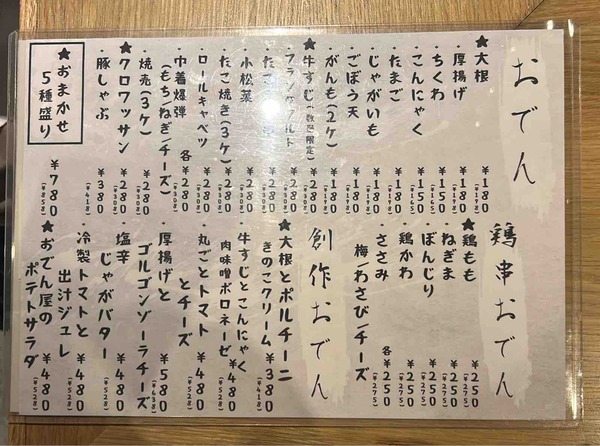 おでん
★大根 ¥180 (¥198)
・厚揚げ ¥180 (¥198)
・ちくわ ¥150 (¥165)
・こんにゃく ¥150 (¥165)
・たまご ¥180 (¥198)
・じゃがいも ¥180 (¥198)
・ごぼう天 ¥180 (¥198)
・がんも(2ケ) ¥180 (¥198)
★牛すじ(数量限定) ¥280 (¥308)
・フランクフルト ¥280 (¥308)
・たこ ¥280 (¥308)
・小松菜 ¥280 (¥308)
・たこ焼き(3ケ) ¥280 (¥308)
・ロールキャベツ ¥280 (¥308)
・巾着爆弾
(もち/ねぎ/チーズ) 各¥280 (¥308)
・焼売(3ケ) ¥280 (¥308)
★クロワッサン ¥280 (¥308)
・豚しゃぶ ¥380 (¥418)
★おまかせ
5種盛り ¥780 (¥858)
鶏串おでん
★鶏もも ¥250 (¥275)
ねぎま ¥250 (¥275)
ぼんじり ¥250 (¥275)
鶏かわ ¥250 (¥275)
ささみ
梅/わさび/チーズ 各¥250 (¥275)
創作おでん
★大根とポルチーニ
きのこクリーム ¥380 (¥418)
牛すじとこんにゃく
肉味噌ボロネーゼ ¥480 (¥528)
丸ごとトマト
とチーズ ¥480 (¥528)
厚揚げと
ゴルゴンゾーラチーズ ¥580 (¥638)
塩辛
じゃがバター ¥480 (¥528)
冷製トマトと
出汁ジュレ ¥480 (¥528)
★おでん屋の
ポテトサラダ ¥480 (¥528)